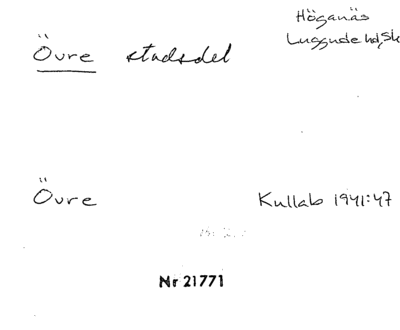 Övre stadsdel
Höganäs
Luggude hd, Sk
Övre
Kullab 1941:47
Nr 21771